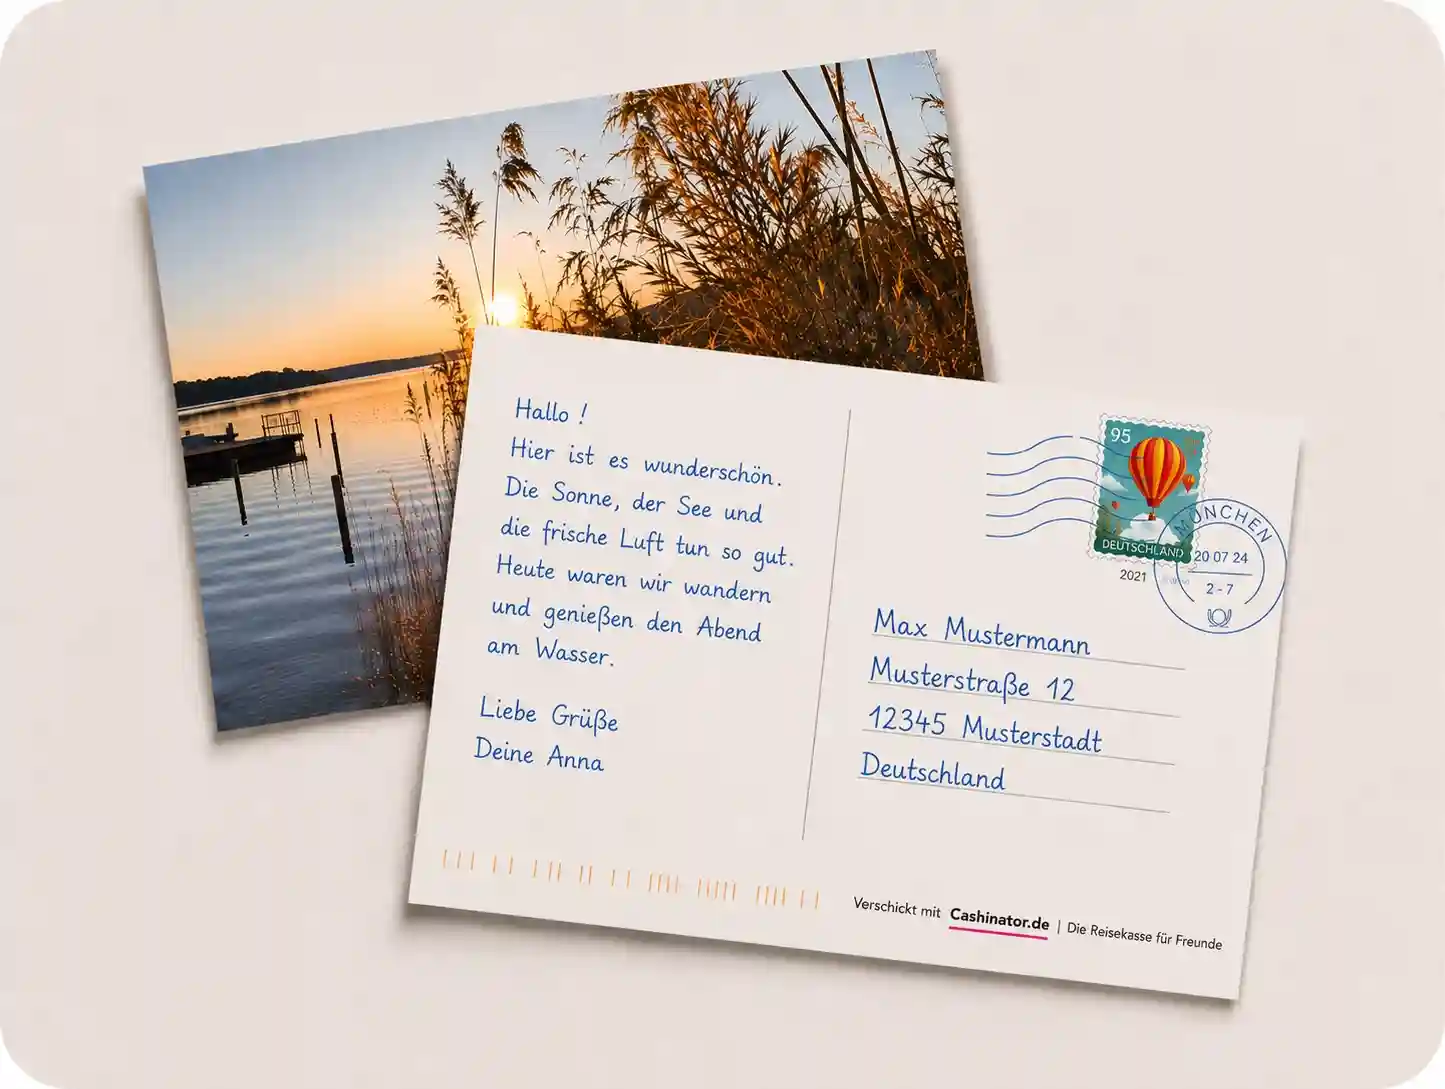 Hallo !
Hier ist es wunderschön.
Die Sonne, der See und
die frische Luft tun so gut.
Heute waren wir wandern
und genießen den Abend
am Wasser.
Liebe Grüße
Deine Anna
95
DEUTSCHLAND
2021
MÜNCHEN
20 07 24
2 - 7
Max Mustermann
Musterstraße 12
12345 Musterstadt
Deutschland
Verschickt mit Cashinator.de | Die Reisekasse für Freunde